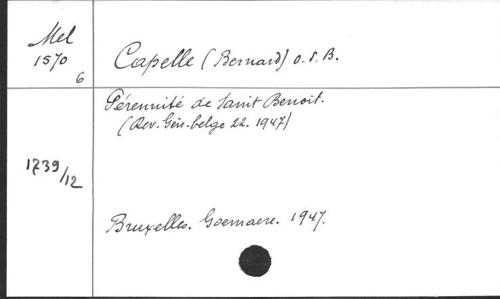 Mel
1570
6
Capelle (Bernard) o.s.B.
Pérennité de Saint Benoit.
(Rev. Gén. belge 22. 1947)
1739/12
Bruxelles. Goemaere. 1947.